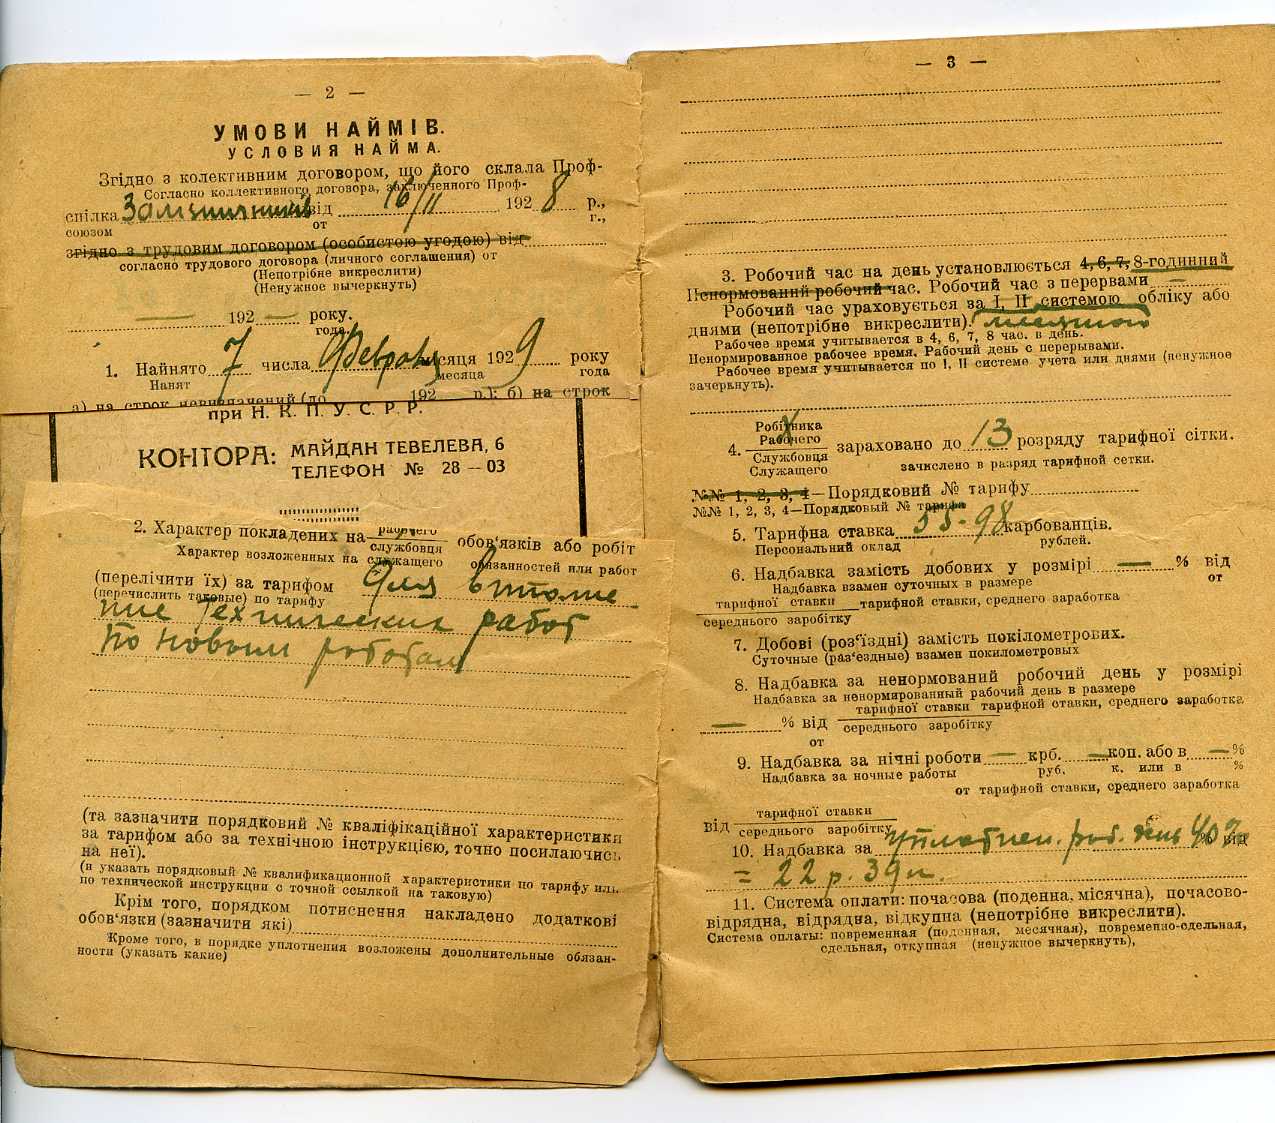 — 2 —
УМОВИ НАЙМІВ.
УСЛОВИЯ НАЙМА.
Згідно з колективним договором, що його склала Проф-
Согласно коллективного договора, заключенного Проф-
спілка від 16/II 1928 р.,
союзом от г.,
згідно з трудовим договором (особистою угодою) від
согласно трудового договора (личного соглашения) от
(Непотрібне викреслити)
(Ненужное вычеркнуть)
— 192 — року.
года.
1. Найнято 7 числа Февраля місяця 1929 року
Нанят месяца года
а) на строк невизначений (до 192 р.); б) на строк
при Н. К. П. У. С. Р. Р.
КОНТОРА: МАЙДАН ТЕВЕЛЕВА, 6
ТЕЛЕФОН № 28—03
2. Характер покладених на рабочего службовця обов'язків або робіт
Характер возложенных на служащего обязанностей или работ
(перелічити їх) за тарифом Для выполне-
(перечислить таковые) по тарифу
ние технических работ
по новым работам
(та зазначити порядковий № кваліфікаційної характеристики
за тарифом або за технічною інструкцією, точно посилаючись
на неї).
(и указать порядковый № квалификационной характеристики по тарифу или
по технической инструкции с точной ссылкой на таковую)
Крім того, порядком потиснення накладено додаткові
обов'язки (зазначити які)
Кроме того, в порядке уплотнения возложены дополнительные обязан-
ности (указать какие)
— 3 —
3. Робочий час на день установлюється 4, 6, 7, 8-годинний
Ненормований робочий час. Робочий час з перервами —
Робочий час ураховується за I, II системою обліку або
днями (непотрібне викреслити).
Рабочее время учитывается в 4, 6, 7, 8 час. в день.
Ненормированное рабочее время. Рабочий день с перерывами.
Рабочее время учитывается по I, II системе учета или днями (ненужное
зачеркнуть).
Робітника
Рабочего
4. зараховано до 13 розряду тарифної сітки.
Службовця
Служащего зачислено в разряд тарифной сетки.
№№ 1, 2, 3, 4—Порядковий № тарифу
№№ 1, 2, 3, 4—Порядковый № тарифа
5. Тарифна ставка 55-98 карбованців.
Персональний оклад рублей.
6. Надбавка замість добових у розмірі — % від
Надбавка взамен суточных в размере от
тарифної ставки тарифной ставки, среднего заработка
середнього заробітку
7. Добові (роз'їздні) замість покілометрових.
Суточные (раз'ездные) взамен покилометровых
8. Надбавка за ненормований робочий день у розмірі
Надбавка за ненормированный рабочий день в размере
тарифної ставки тарифной ставки, среднего заработка
— % від середнього заробітку
от
9. Надбавка за нічні роботи — крб. — коп. або в — %
Надбавка за ночные работы руб. к. или в %
от тарифной ставки, среднего заработка
тарифної ставки
від середнього заробітку
10. Надбавка за уплотнен. раб. день 40 % від
= 22 р. 39 к.
11. Система оплати: почасова (поденна, місячна), почасово-
відрядна, відрядна, відкупна (непотрібне викреслити).
Система оплаты: повременная (поденная, месячная), повременно-сдельная,
сдельная, откупная (ненужное вычеркнуть),